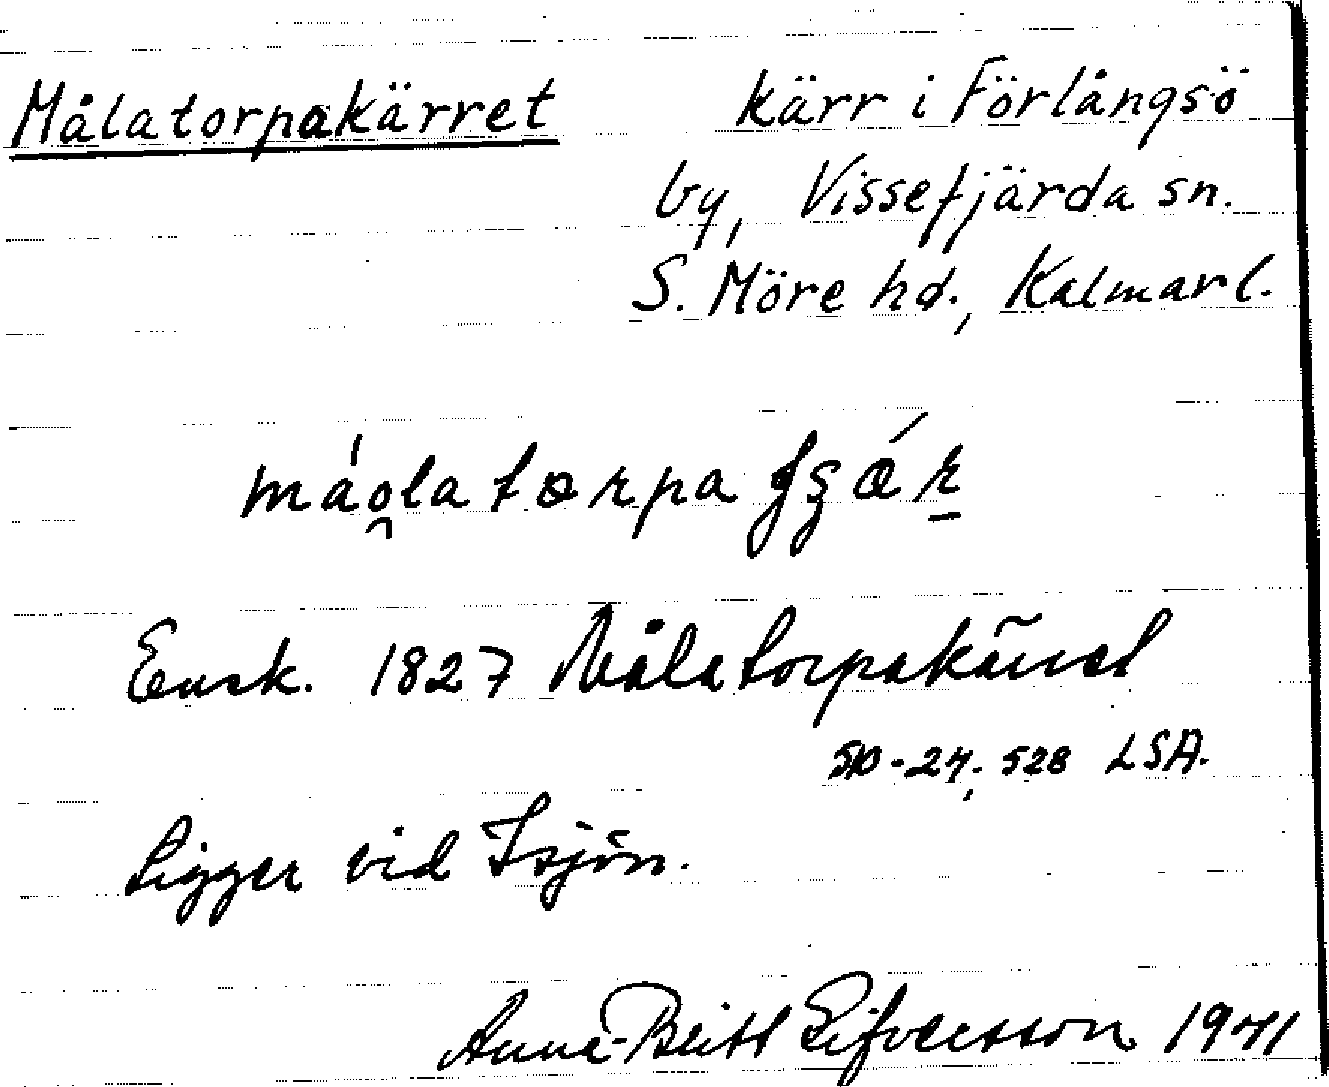 Målatorpakärret kärr i Förlångsö
by, Vissefjärda sn.
S. Möre hd., Kalmar l.
Ensk. 1827 Målatorpakärret
510-24; 528 LSA.
Ligger vid Isjön.
Anna-Britt Sifversson 1941